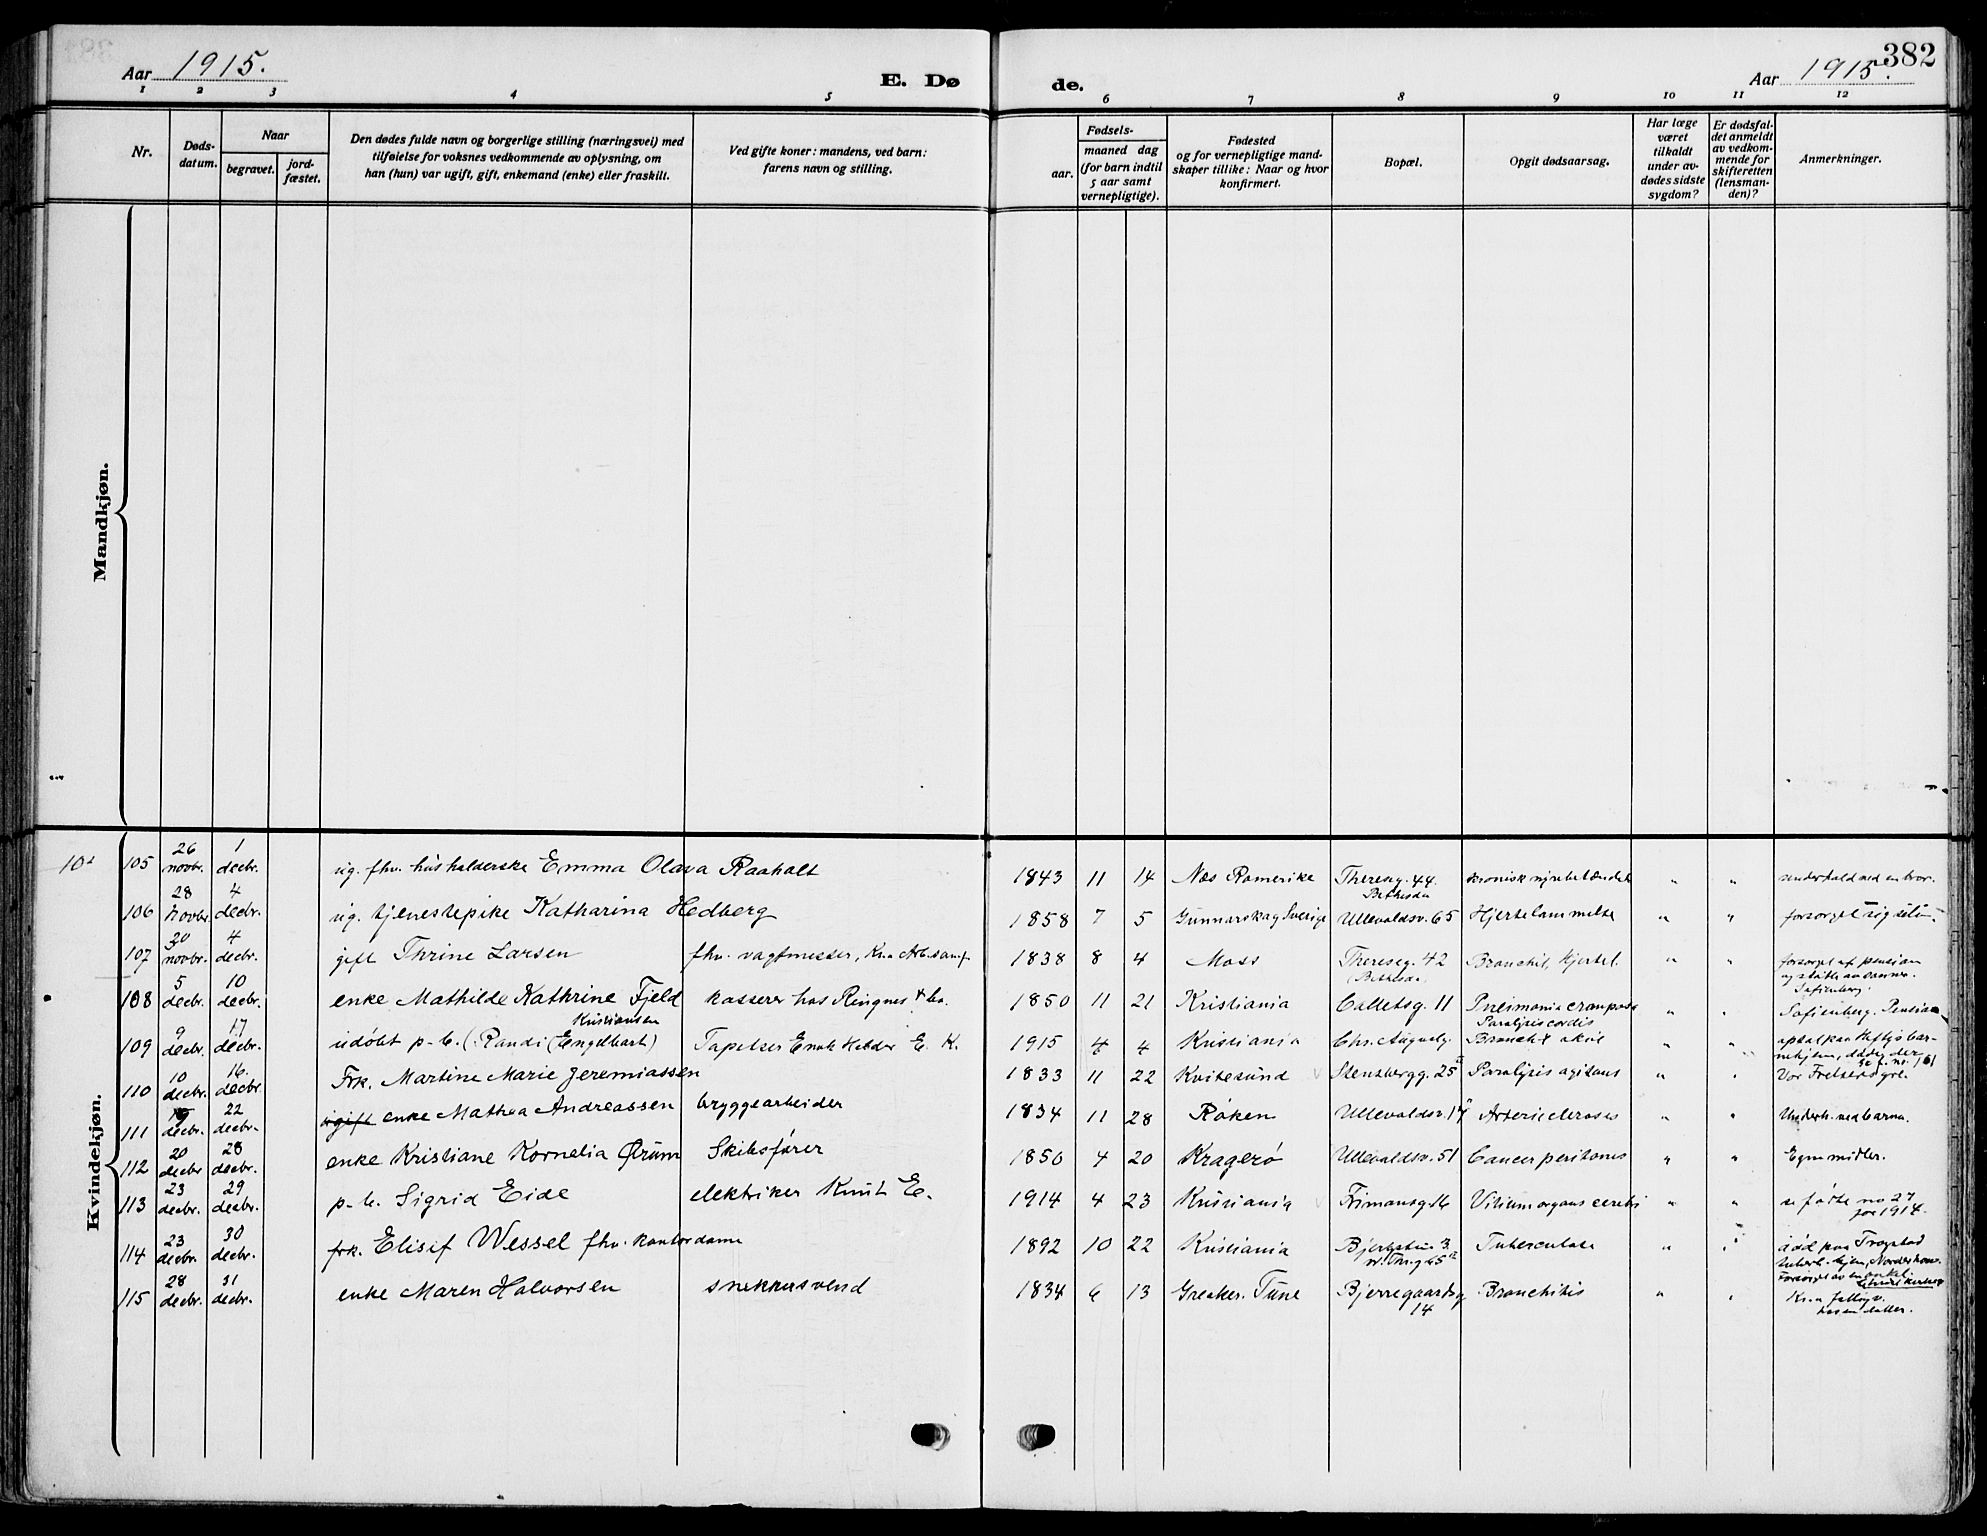 Aar 1915.
E. Dø
de.
Aar 1915.
382
1 2 3 4 5 6 7 8 9 10 11 12
Nr.
Døds-
datum.
Naar
begravet.
jord-
fæstet.
Den dødes fulde navn og borgerlige stilling (næringsvei) med
tilføielse for voksnes vedkommende av oplysning, om
han (hun) var ugift, gift, enkemand (enke) eller fraskilt.
Ved gifte koner: mandens, ved barn:
farens navn og stilling.
Fødsels-
aar.
maaned dag
(for barn indtil
5 aar samt
vernepligtige).
Fødested
og for vernepligtige mand-
skaper tillike: Naar og hvor
konfirmert.
Bopæl.
Opgit dødsaarsag.
Har læge
været
tilkaldt
under av-
dødes sidste
sygdom?
Er dødsfal-
det anmeldt
av vedkom-
mende for
skifteretten
(lensman-
den)?
Anmerkninger.
Mandkjøn.
Kvindekjøn.
105 26 novbr. 1 decbr. ug. fhv. husholderske Emma Olava Raaholt 1843 11 14 Næs Romerike Thereseg. 44. Bethesda kronisk nyrebetændelse " " underhold ved en bror.
106 28 novbr. 4 decbr. ug. tjenestepike Katharina Hedberg 1858 7 5 Gunnarskog Sverige Ullevoldsv. 65 Hjertelammelse " " forsørget sig selv
107 30 novbr. 4 decbr. gift Thrine Larsen fhv. vagtmester, Kr.a Arb.samf. 1838 8 4 Moss Thereseg. 42 Bethesda Bronchit, Hjertel. " " forsørget af pension og støtte av sønner.
108 5 decbr. 10 decbr. enke Mathilde Kathrine Fjeld kasserer hos Ringnes & Co. 1850 11 21 Kristiania Colletsg. 11 Pneimonia crouposa Paralysis cordis " " Sofienberg. Pension
109 9 decbr. 17 decbr. udøbt p-b. (Randi Engelhart) Kristiansen Tapetser Enok Helder E. K. 1915 4 4 Kristiania Chr. Augustg. Bronchit akut " "
110 10 decbr. 16. decbr. Frk. Martine Marie Jeremiassen 1833 11 22 Kvitesund Stensbergg. 25 Paralysis agitans " " Vor Frelsers
111 15 decbr. 22 decbr. enke Mathea Andreassen bryggearbeider 1834 11 28 Røken Ullevoldsv. 17 Arteriosclerosis " " Underh. ved barna.
112 20 decbr 28 decbr. enke Kristiane Kornelia Ørum Skibsfører 1850 4 20 Kragerø Ullevoldsv. 51 Cancer peritones " " Egne midler.
113 23 decbr. 29 decbr. p-b. Sigrid Eide elektriker Knut E. 1914 4 23 Kristiania Frimansg. 16 Vitium organs cerebri " " se fødte no 27 for 1914.
114 23 decbr. 30 decbr. frk. Elisif Wessel fhv. kontordame 1892 10 22 Kristiania Tuberculose " " død paa Trøgstad Tuberk. hjem,
115 28 decbr. 31 decbr. enke Maren Halvorsen snekkersvend 1834 6 13 Greaker. Tune Bjerregaardsg 14 Bronchitis " "